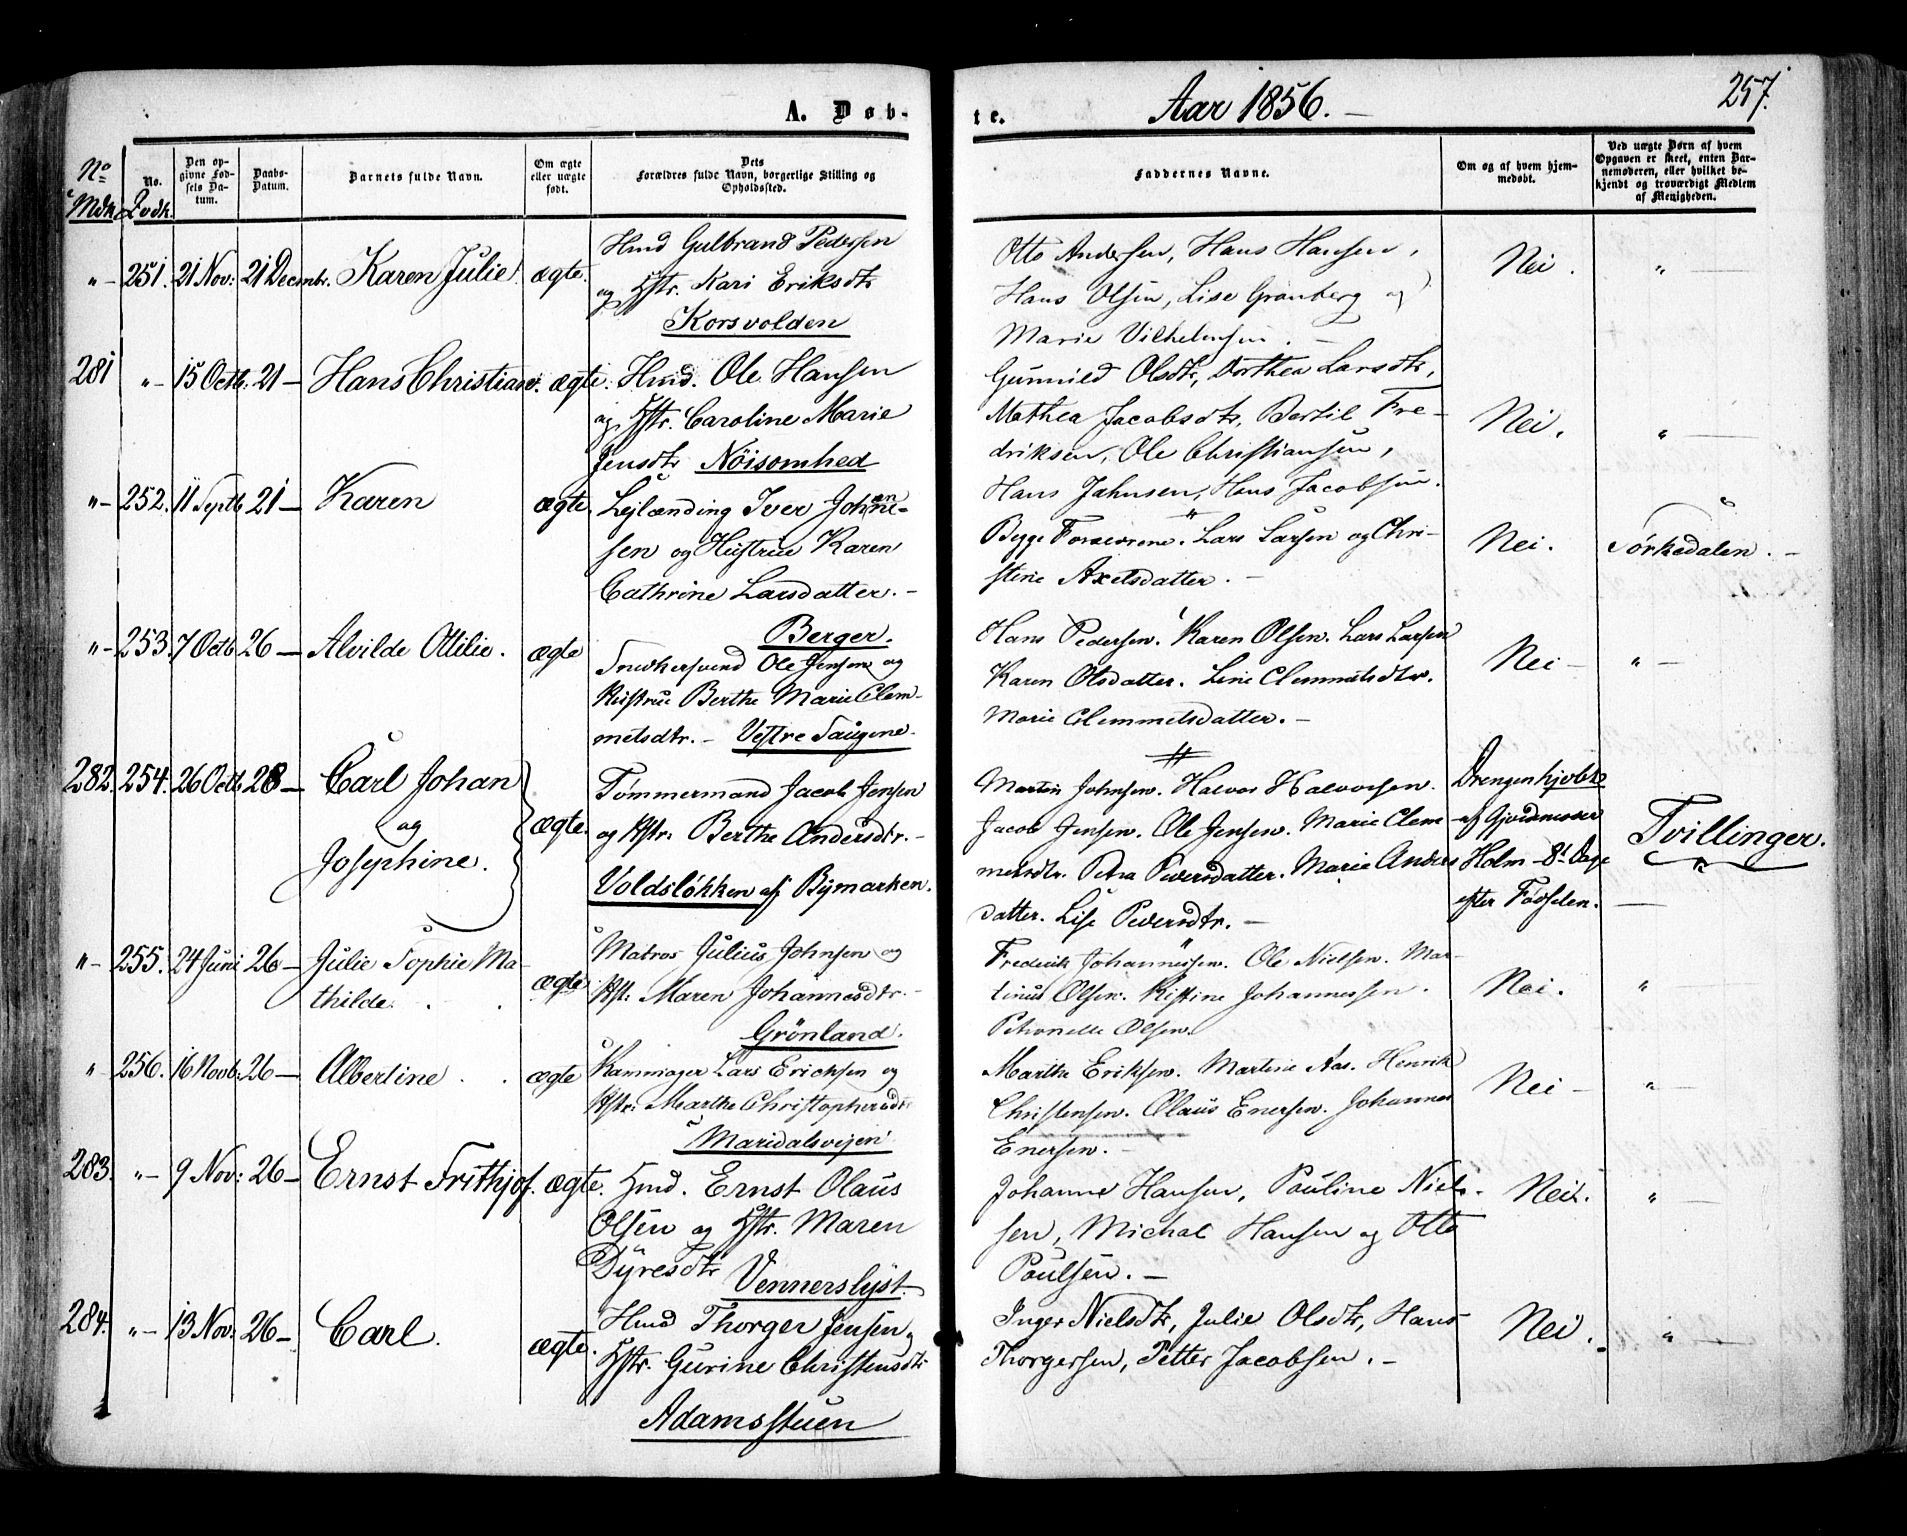 A. Døb-
te.
Aar 1856. —
257.
No Mdk.
No. Qvdk.
Den opgivne Fødsels Datum.
Daabs-Datum.
Barnets fulde Navn.
Om ægte eller uægte født.
Dets Forældres fulde Navn, borgerlige Stilling og Opholdssted.
Faddernes Navne.
Om og af hvem hjemmedøbt.
Ved uægte Børn af hvem Opgaven er skeet, enten Barnemoderen, eller hvilket bekjendt og troværdigt Medlem af Menigheden.
"— 251. 21 Nov: 21 Decmbr. Karen Julie. ægte.
Hmd Gulbrand Pedersen
og Hstr. Kari Eriksdtr
Korsvolden
Otto Andersen, Hans Hansen,
Hans Olsen, Lise Granberg og
Marie Vilhelmsen. —
Nei. " —
281 "— 15 Octb. 21 — Hans Christian. ægte.
Hmd. Ole Hansen
og Hstr. Caroline Marie
Jensdtr Nöisomhed
Gunnild Olsdtr, Dorthea Larsdtr,
Mathea Jacobsdtr, Bertil Fre-
driksen, Ole Christiansen,
Hans Jahnsen, Hans Jacobsen.
Nei. " —
"— 252. 11 Septb 21 — Karen ægte.
Lejlænding Iver Johanne-
sen og Hustrue Karen
Cathrine Larsdatter. —
Berger.
Begge Forældrene. Lars Larsen og Chri-
stine Axelsdatter. —
Nei. Sørkedalen. —
"— 253. 7 Octb 26 — Alvilde Ottilie. ægte
Snedkersvend Ole Jensen og
Hustrue Berthe Marie Clem-
metsdtr. — Vestre Saugene.
Hans Pedersen. Karen Olsen. Lars Larsen
Karen Olsdatter. Line Clemmetsdtr.
Marie Clemmetsdatter. —
Nei — " —
282. 254. 26 Octb 28 — Carl Johan
og
Josephine. ægte.
Tømmermand Jacob Jensen
og Hstr: Berthe Andersdtr. —
Voldsløkken af Bymarken.
Martin Johnsen. Halvor Halvorsen.
Jacob Jensen. Ole Jensen. Marie Clem
metsdtr. Petra Pedersdatter. Marie Anders
datter. Lise Pedersdtr. —
Drengen hjdbt
af Gjordmoder
Holm — 8t Dage
efter Fødselen.
Tvillinger.
"— 255. 24 Juni 26 — Julie Sophie Ma-
thilde. ægte
Matros Julius Johnsen og
Hst: Maren Johannesdtr. —
Grönland.
Frederik Johannessen. Ole Nielsen. Mar-
tinus Olsen. Kistine Johannessen.
Petronelle Olsen.
Nei. "
" 256. 16 Novb: 26 — Albertine. ægte
Kammager Lars Ericksen og
Hstr: Marthe Christophersdtr
Maridalsvejen
Marthe Eriksen. Martine Aas. Henrik
Christensen. Olaus Enersen. Johannes
Enersen. —
Nei — " —
283. "— 9 Nov: 26 — Ernst Frithjof. ægte.
Hmd. Ernst Olaus
Olsen og Hstr. Maren
Dyresdtr Vennerslyst.
Johanne Hansen, Pauline Niel-
sen, Michal Hansen og Otto
Paulsen. —
Nei. " —
284. "— 13 Nov: 26 — Carl. ægte.
Hmd Thorger Jensen,
Hstr. Gurine Christensdtr
Adamsstuen
Inger Nielsdtr, Julie Olsdtr, Hans
Thorgersen, Petter Jacobsen. —
Nei. " —